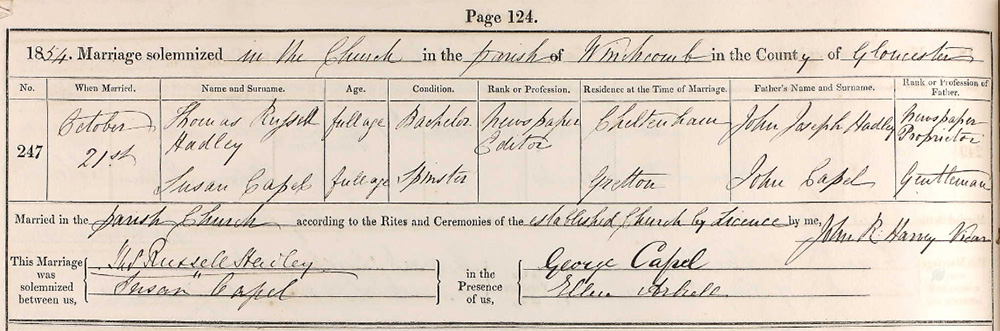 Page 124.
1854. Marriage solemnized in the Church in the parish of Winchcomb in the County of Gloucester
No. When Married. Name and Surname. Age. Condition. Rank or Profession. Residence at the Time of Marriage. Father's Name and Surname. Rank or Profession of Father.
247
October 21st
Thomas Russell Hadley full age Bachelor Newspaper Editor Cheltenham John Joseph Hadley Newspaper Proprietor
Susan Capel full age Spinster Gretton John Capel Gentleman
Married in the parish Church according to the Rites and Ceremonies of the established Church by Licence by me, John R Harvy Vicar
This Marriage was solemnized between us,
Thos Russell Hadley
Susan Capel
in the Presence of us,
George Capel
Ellen